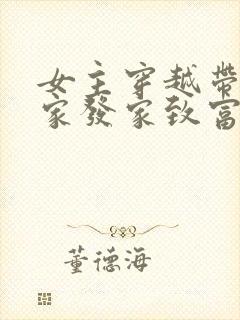 女主穿越带
家发家致富
董德海